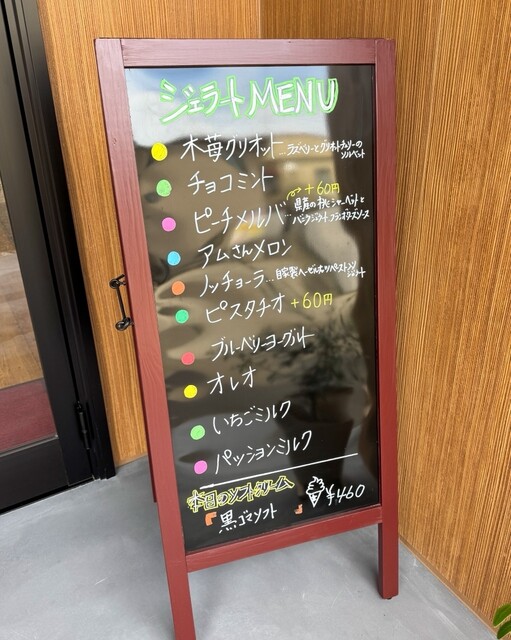 ジェラートMENU
木苺グリオット…ラズベリーとグリオットチェリーの
ソルベット
チョコミント
+60円
ピーチメルバ…県産の桃シャーベットと
バニラジェラート フランボワーズソース
アムさんメロン
ノッチョーラ…自家製ヘーゼルナッツペースト入り
ジェラート
ピスタチオ +60円
ブルーベリーヨーグルト
オレオ
いちごミルク
パッションミルク
本日のソフトクリーム
黒ゴマソフト
¥460